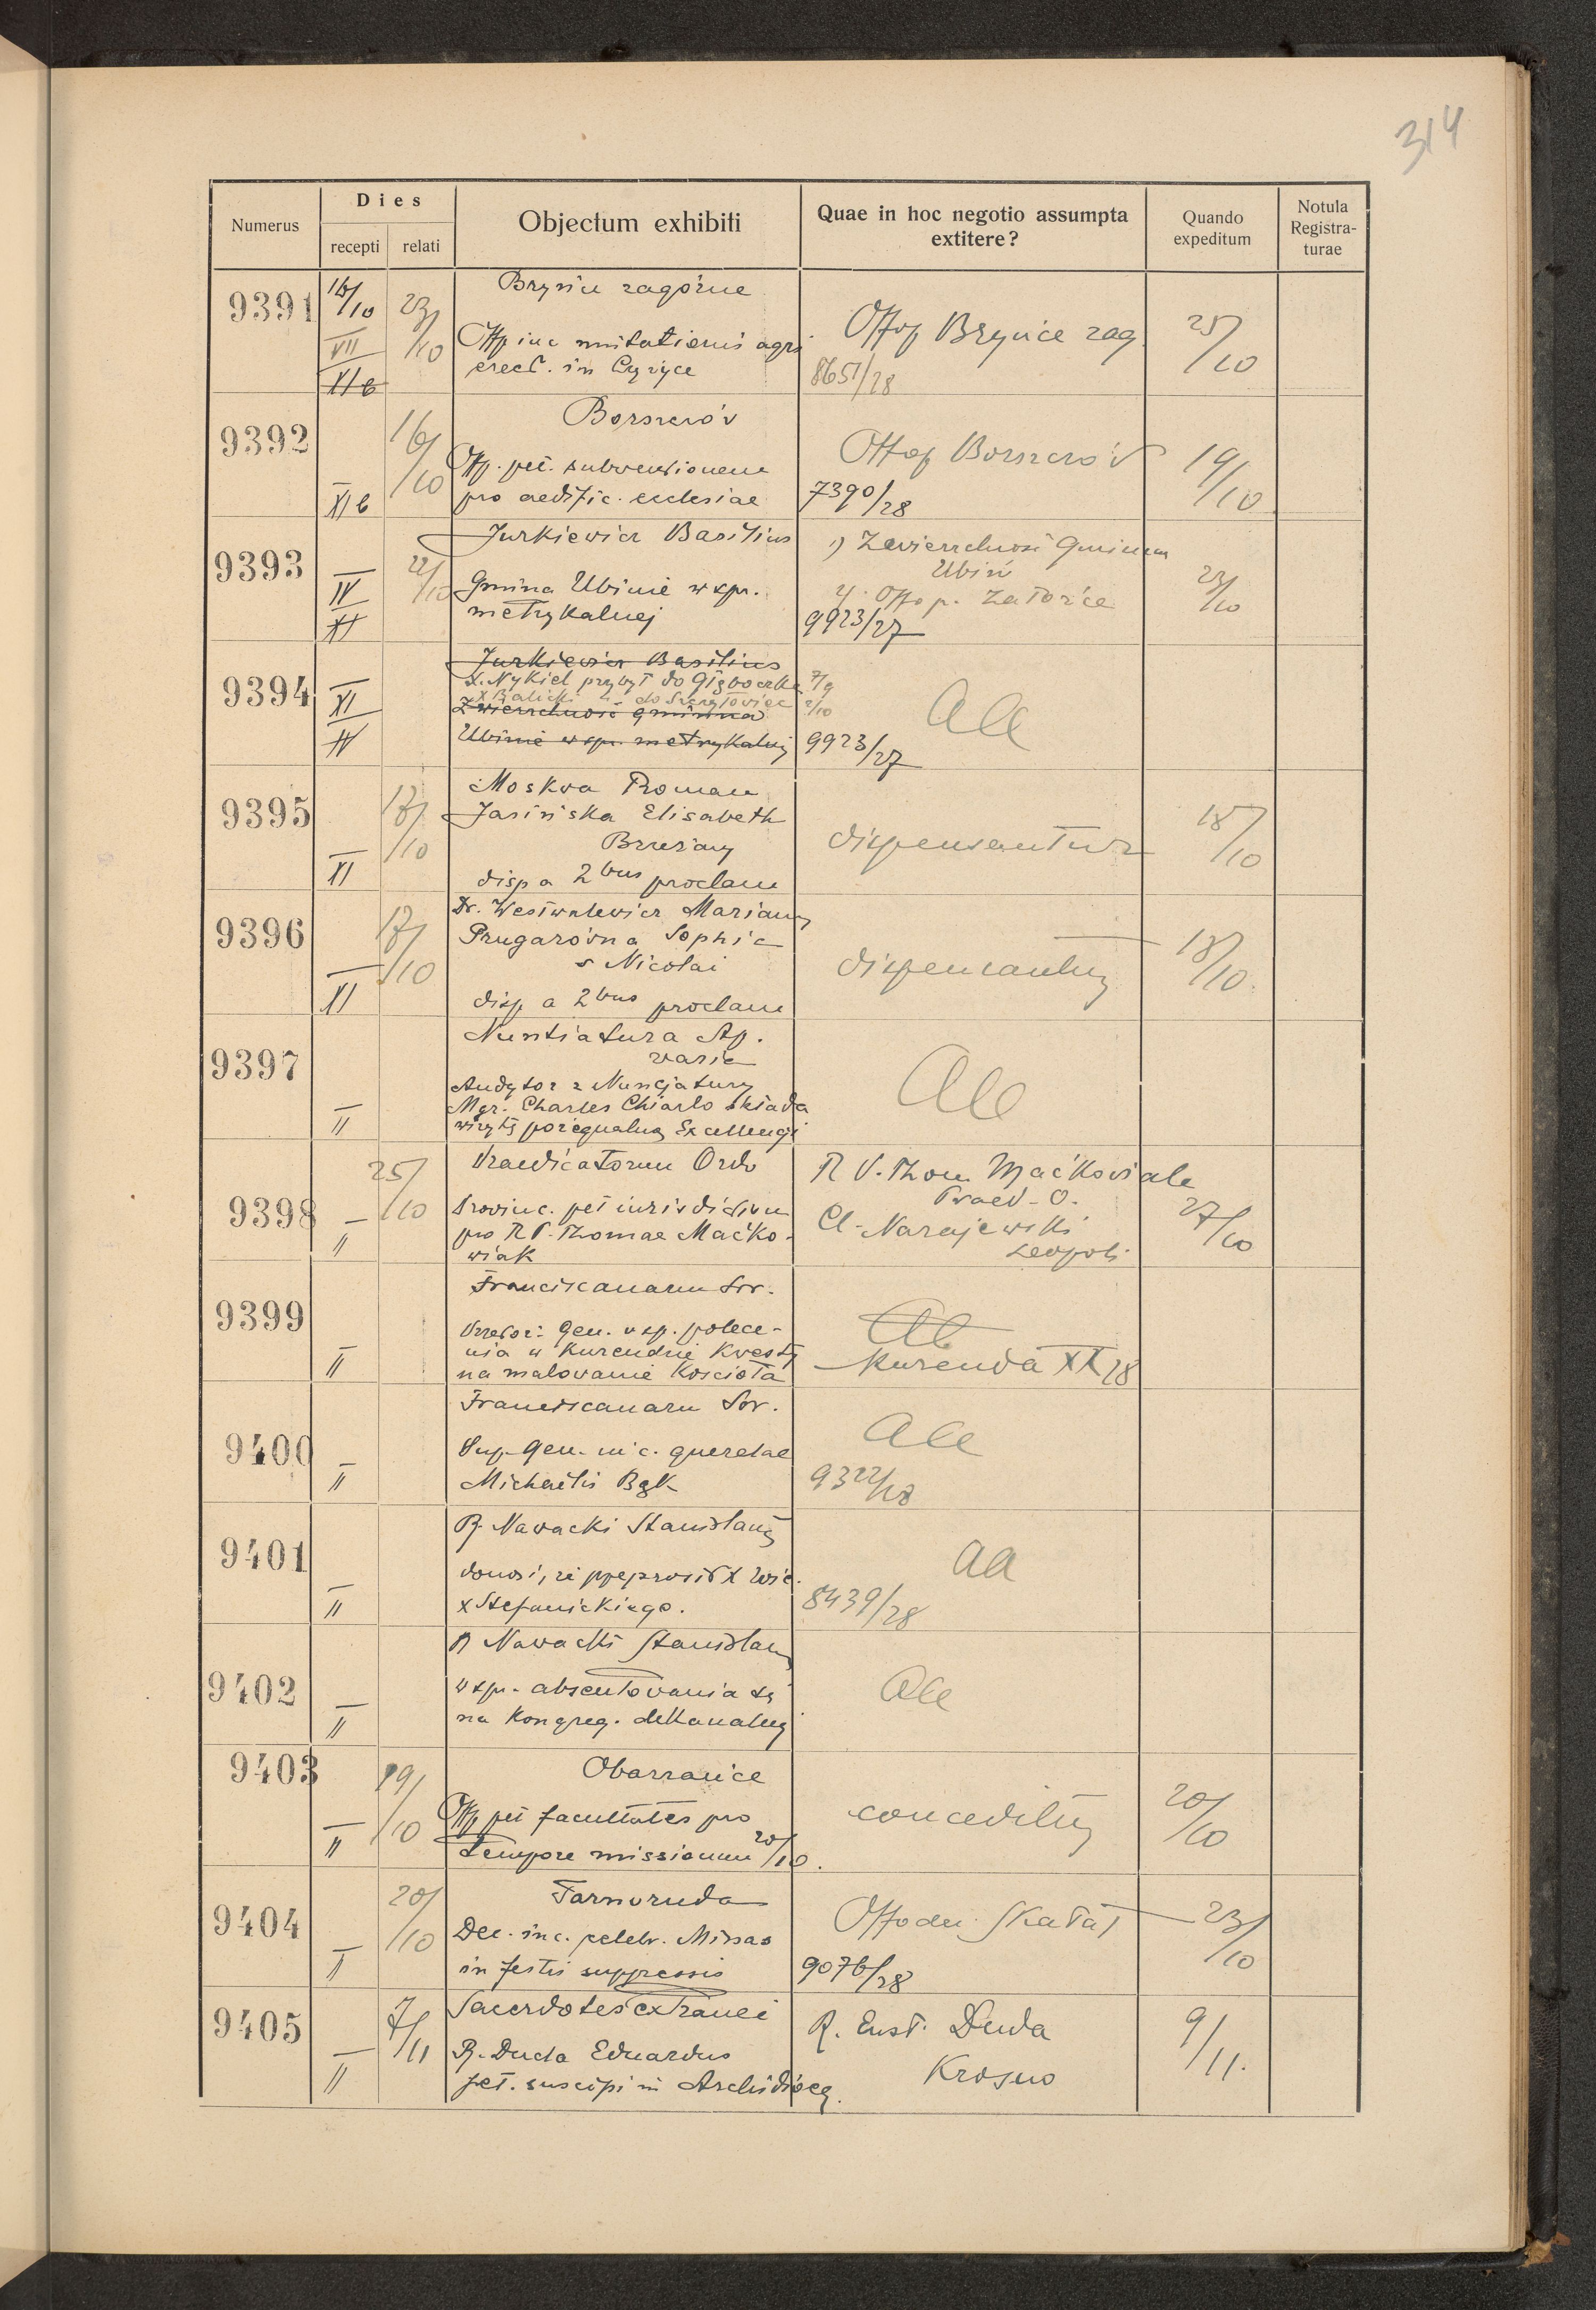 314
Numerus
Dies
recepti
relati
Objectum exhibiti
Quae in hoc negotio assumpta
extitere?
Quando
expeditum
Notula
Registra-
turae
9391
16/10
VII
XI b
23/10
Brynce zagórne
Offp inc mutationis agri
erect. in
Offop Brynce zag
8651/28
25/10
9392
XI b
16/10
Borszczów
Offp. pet. subventionem
pro aedific. ecclesiae
Offop Borszczów
7390/28
19/10
9393
IV
XI
22/10
Jurkiewicz Basilius
Gmina Ubinie w spr.
metrykalnej
1) Zwierzchność Gminna
Ubiń
2. Offop.
9923/27
23/10
9394
XI
IV
Jurkiewicz Basilius
X. Nykiel przybył do Głęboczka 7/9
X Balicki " do 2/10
Zwierzchność gminna
Ubinie w sp. metrykalnej
aa
9923/27
9395
XI
17/10
Moskwa Roman
Jasińska Elisabeth
Brzeżany
disp a 2bus proclam
dispensantur
18/10
9396
XI
17/10
Dr. Marian
Prugarówna Sophia
s Nicolai
disp a 2bus proclam
dispensantur
18/10.
9397
II
Nuntiatura Ap.
varia
Audytor z Nuncjatury
Mgr. Charles Chiarlo składa
wizytę pożegnalną Excellencji
aa
9398
II
25/10
Praedicatorum Ordo
Provinc. pet iurisdictionem
pro R P. Thomae Maćko-
wiak
R P. Thom Maćkowiak
Praed. O.
Cl. Narajewski
Leopoli
27/10
9399
II
Franciscanarum Sor.
Przełoż: Gen. w sp. polece-
nia w Kurendzie Kwesty
na malowanie Kościoła
aa
Kurenda XX 28
9400
II
Franciscanarum Sor.
Sup. Gen. inc. querelae
Michaelis Bąk
aa
9322/28
9401
II
R. Nawacki Stanislaus
donosi, że przeprosił X Wic.
x Stefanickiego.
aa
8439/28
9402
II
R Nawacki Stanislaus
w spr. absentowania się
na Kongreg. dekanalnej
aa
9403
II
19/10
Obarzańce
Offp pet facultates pro
tempore missionum 20/10.
conceditur
20/10
9404
II
20/10
Tarnoruda
Dec. inc. celebr. Missas
in festis suppressis
Offo dec. Skałat
9076/28
23/10
9405
II
7/11
Sacerdotes extranei
R. Duda Eduardus
pet. suscipi in Archidioec.
R. Duda
Krosno
9/11.